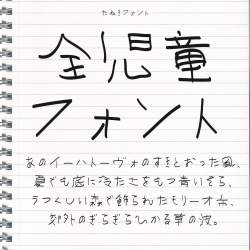 たぬきフォント
全児童
フォント
あのイーハトーヴォのすきとおった風、
夏でも底に冷たさをもつ青いそら、
うつくしい森で飾られたモリーオ市、
郊外のぎらぎらひかる草の波。